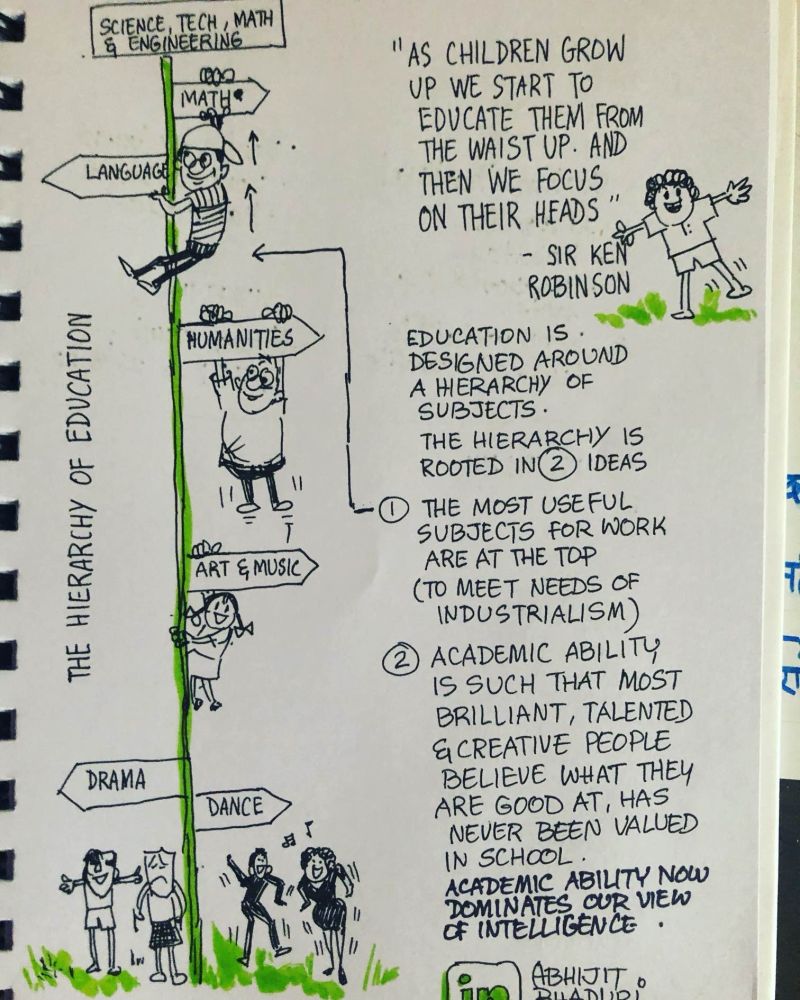 SCIENCE, TECH, MATH
& ENGINEERING
MATH
LANGUAGE
HUMANITIES
ART & MUSIC
DRAMA
DANCE
THE HIERARCHY OF EDUCATION
"AS CHILDREN GROW
UP WE START TO
EDUCATE THEM FROM
THE WAIST UP. AND
THEN WE FOCUS
ON THEIR HEADS"
- SIR KEN
ROBINSON
EDUCATION IS
DESIGNED AROUND
A HIERARCHY OF
SUBJECTS.
THE HIERARCHY IS
ROOTED IN 2 IDEAS
1 THE MOST USEFUL
SUBJECTS FOR WORK
ARE AT THE TOP
(TO MEET NEEDS OF
INDUSTRIALISM)
2 ACADEMIC ABILITY
IS SUCH THAT MOST
BRILLIANT, TALENTED
& CREATIVE PEOPLE
BELIEVE WHAT THEY
ARE GOOD AT, HAS
NEVER BEEN VALUED
IN SCHOOL.
ACADEMIC ABILITY NOW
DOMINATES OUR VIEW
OF INTELLIGENCE.
in ABHIJIT
BHADURI